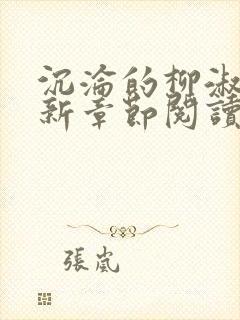 沉淪的柳淑
新章節閱讀
張嵐